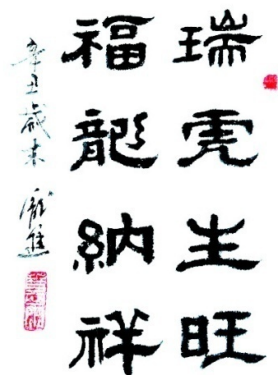 瑞虎生旺
福龍納祥
辛丑歲末